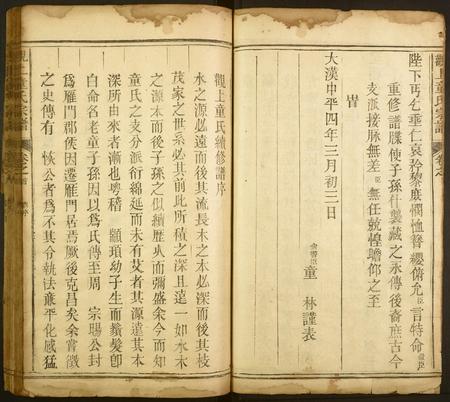 陛下丐乞垂仁哀矜黎庶憫恤簪纓俯允臣言特命
重修譜牒使子孫什襲藏之永傳後裔庶古今
支派接脉無差臣無任兢惶瞻仰之至
旹
大漢中平四年三月初三日
童林謹表
觀上童氏續修譜序
水之源必遠而後其流長木之本必深而後其枝
茂家之世系必其前此所積之深且遠一如水木
之源本而後子孫之似續歷久而彌盛余今而知
童氏之支分派衍綿延而未有艾者其源遠其本
深所由來者漸也粵稽顓頊幼子生而鬒髮卽
自命名老童子孫因以爲氏傳至周宗賜公封
爲雁門郡侯因遷雁門居焉厥後克昌矣余嘗徵
之史傳有恢公者爲不其令執法廉平化感猛
觀上童氏宗譜
卷之首